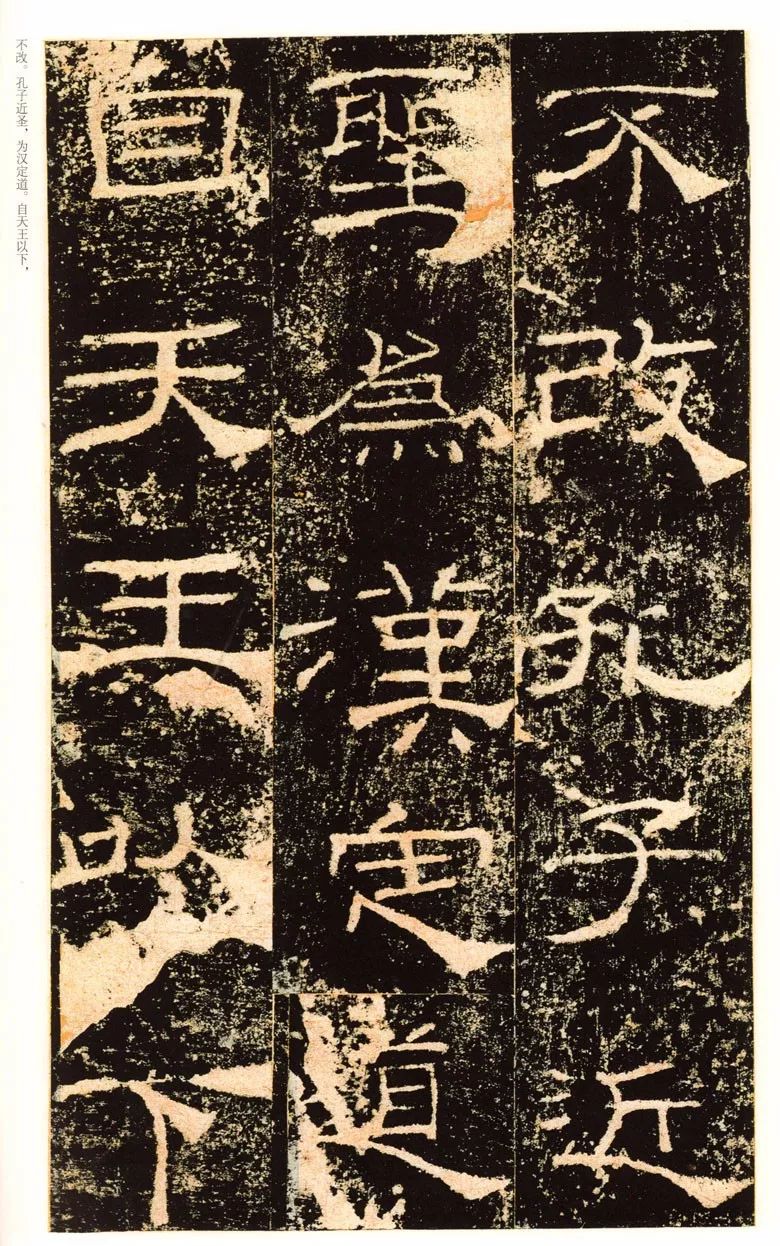 不改孔子近
聖為漢定道
自天王以下
不改。孔子近圣，为汉定道。自天王以下，